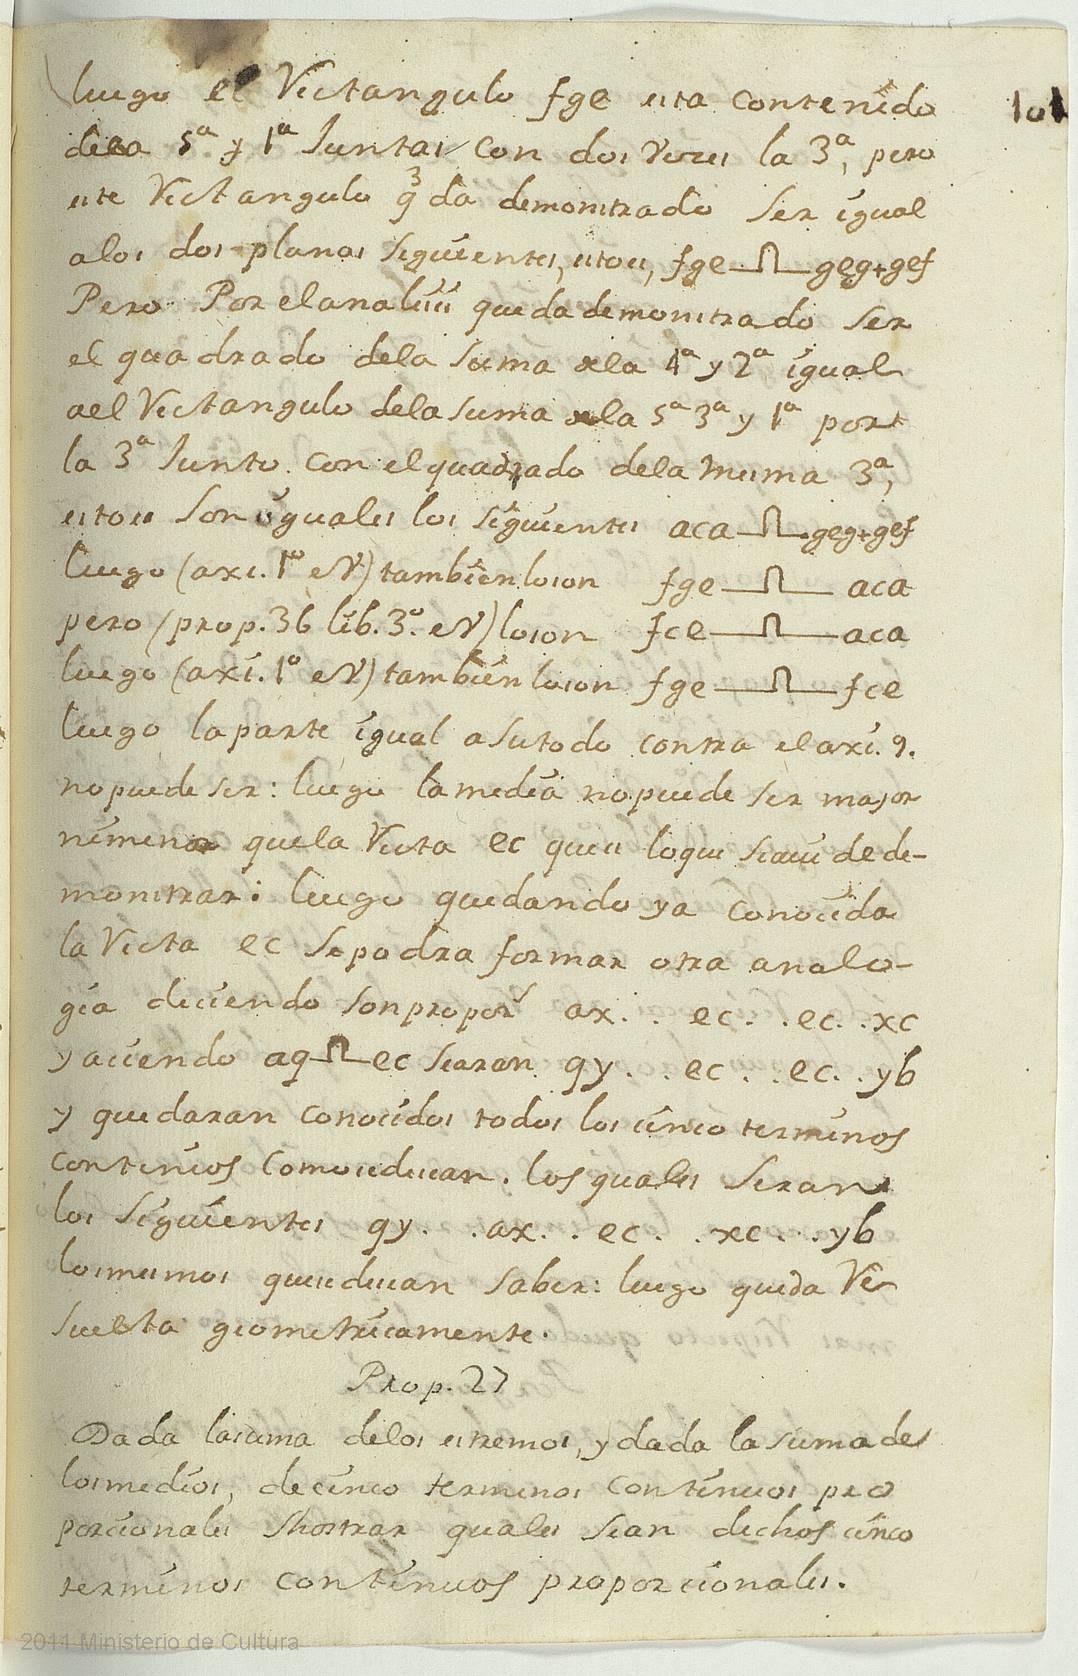 luego el Rectangulo fge esta contenido
101
dela 5ª y 1ª Juntas con dos vezes la 3ª, pero
este Rectangulo q̃da demonstrado ser igual
alos dos planos siguientes, esto es, fge ⎍ geg+gef
Pero Por el analisis queda demonstrado ser
el quadrado dela suma dela 4ª y 2ª igual
ael Rectangulo dela suma dela 5ª 3ª y 1ª por
la 3ª Junto con el quadrado dela mesma 3ª,
esto es son iguales los siguientes aca ⎍ geg+gef
luego (axi. 1º eV) tambien loson fge ⎍ aca
pero (prop. 36 lib. 3º. eV) loson fce ⎍ aca
luego (axi. 1º eV) tambien loson fge ⎍ fce
luego la parte igual a su todo contra el axi. 9.
no puede ser: luego la media no puede ser major
ni menor que la Recta ec que es lo que se avie de de-
monstrar: luego quedando ya conocida
la Recta ec se podra formar otra analo-
gia diciendo son propor.l ax . . ec . . ec . . xc
y aciendo aq ⎍ ec searan qy . . ec . . ec . . yb
y quedaran conocidos todos los cinco terminos
continuos como se decian. los quales seran
los siguientes qy . . ax . . ec . . xc . . yb
los mesmos que se decian saber: luego queda Re
suelta geometricamente.
Prop. 27
Dada la suma delos estremos, y dada la suma de
los medios, de cinco terminos continuos pro
porcionales Mostrar quales sean dichos cinco
terminos continuos proporcionales.
2011 Ministerio de Cultura